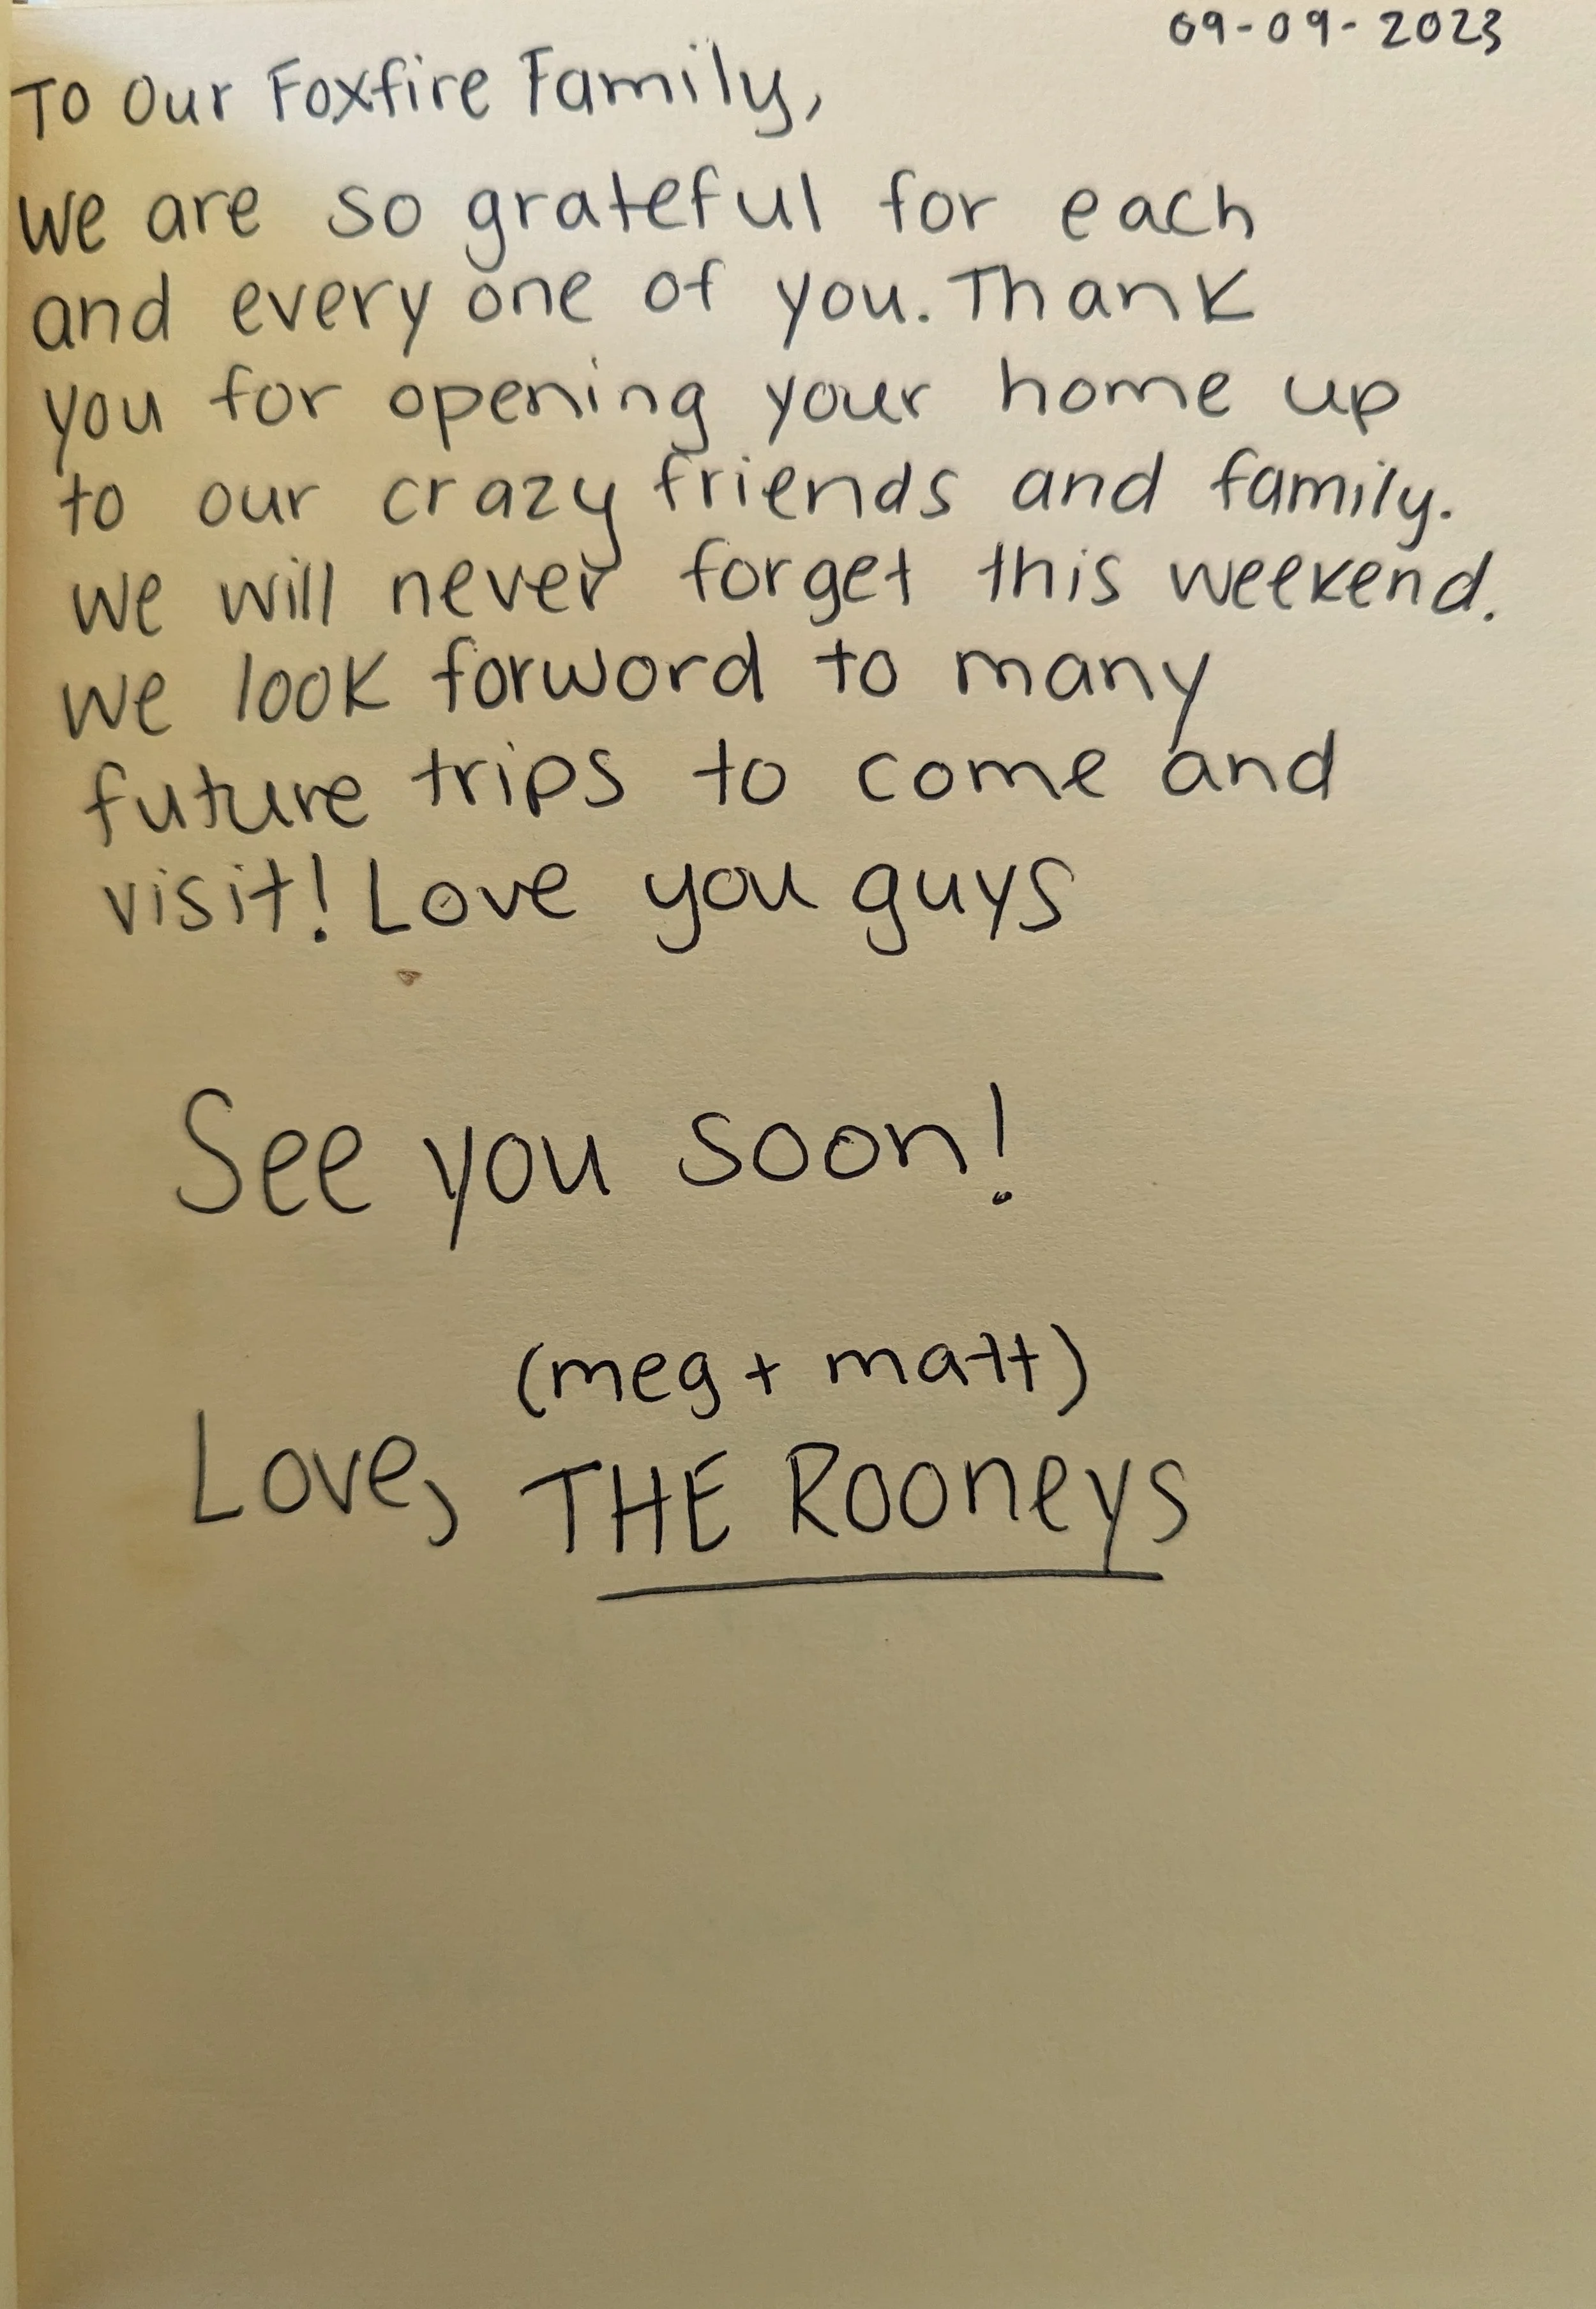 09-09-2023
To Our Foxfire Family,
We are so grateful for each
and every one of you. Thank
you for opening your home up
to our crazy friends and family.
We will never forget this weekend.
We look forword to many
future trips to come and
visit! Love you guys
See you soon!
(meg + matt)
Love, THE Rooneys